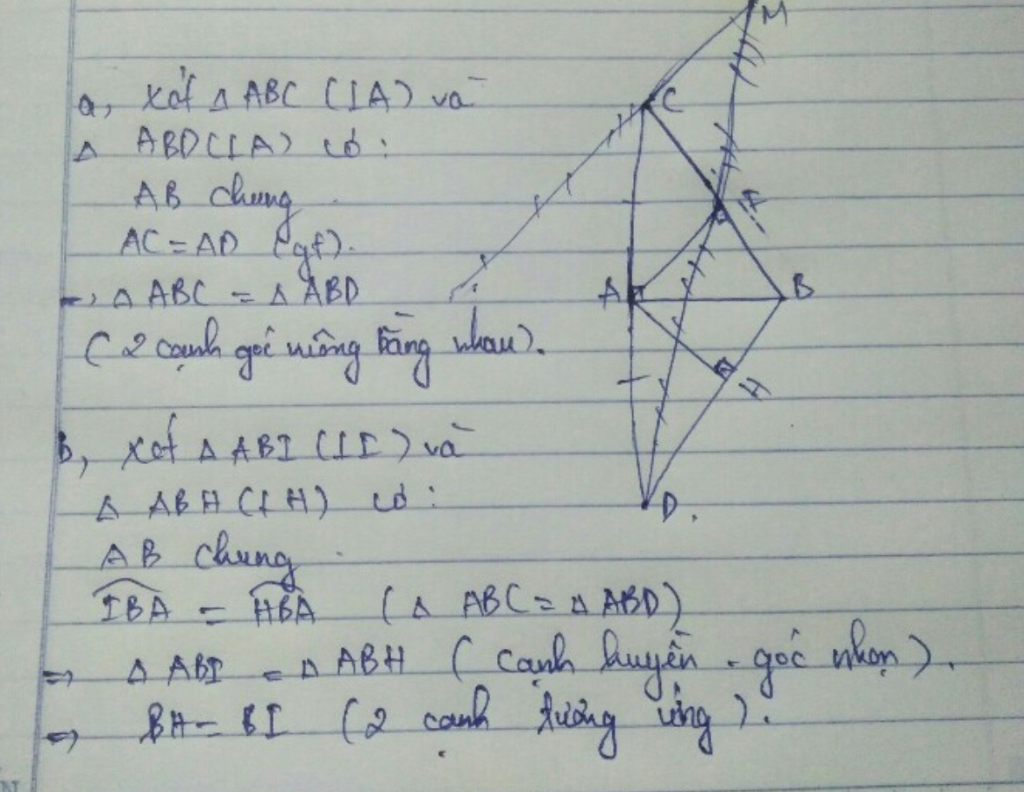 a, Xét △ ABC (⊥A) và
△ ABD (⊥A) có:
AB chung
AC = AD (gt).
=> △ ABC = △ ABD
(2 cạnh góc vuông bằng nhau).
b, Xét △ ABI (⊥I) và
△ ABH (⊥H) có:
AB chung
IBA = HBA (△ ABC = △ ABD)
=> △ ABI = △ ABH (cạnh huyền - góc nhọn).
=> BH = BI (2 cạnh tương ứng).
M
C
A
B
H
D.